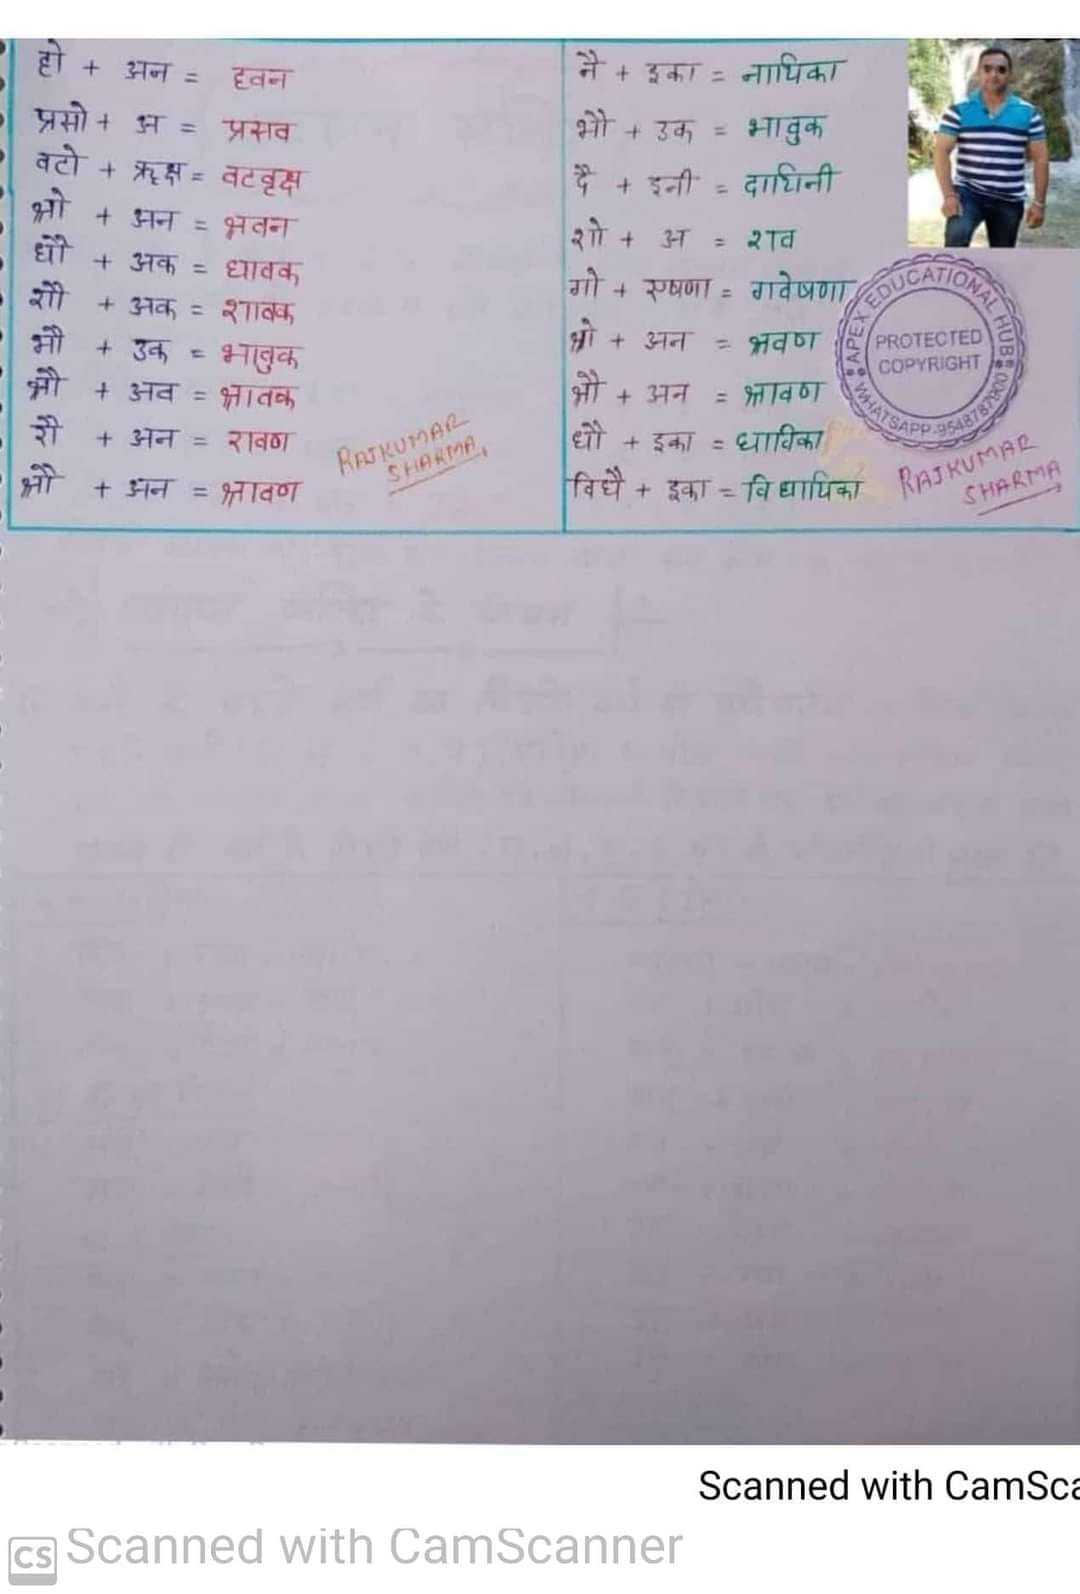 हो + अन = हवन
प्रसो + अ = प्रसव
वटो + ऋक्ष = वटवृक्ष
भो + अन = भवन
धौ + अक = धावक
शौ + अक = शावक
भौ + उक = भावुक
श्रौ + अक = श्रावक
रौ + अन = रावण
श्रौ + अन = श्रावण
RAJKUMAR
SHARMA
नै + इका = नायिका
भौ + उक = भावुक
दै + इनी = दायिनी
शो + अ = शव
गो + एषणा = गवेषणा
श्रो + अन = श्रवण
श्रौ + अन = श्रावण
धौ + इका = धाविका
विधै + इका = विधायिका
APEX EDUCATIONAL HUB
PROTECTED
COPYRIGHT
RAJKUMAR
SHARMA
Scanned with CamSca
CS Scanned with CamScanner